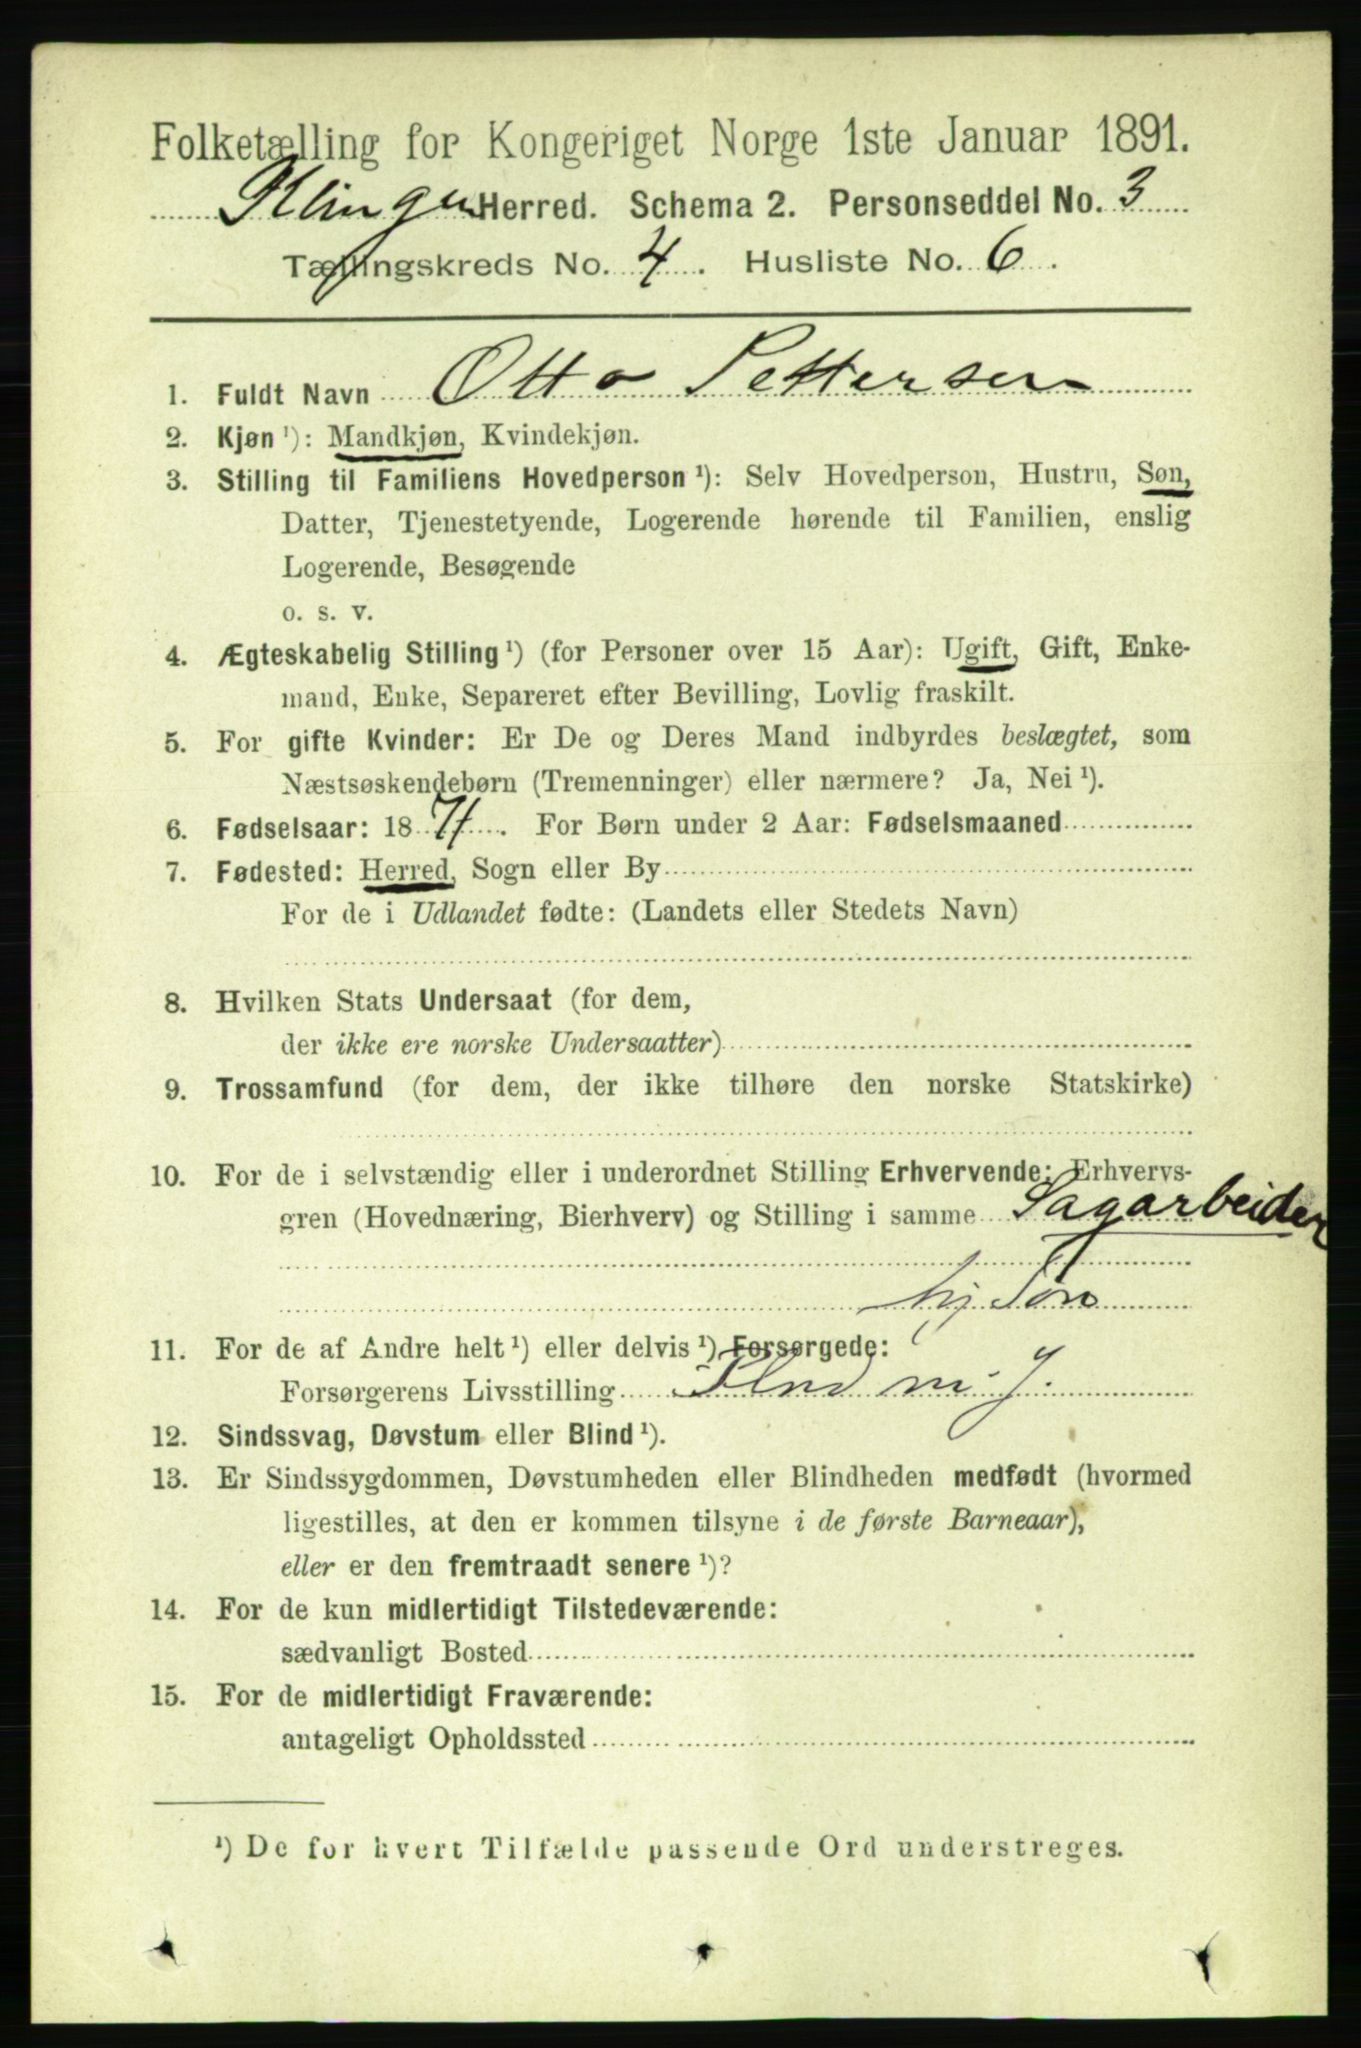 Folketælling for Kongeriget Norge 1ste Januar 1891.
Klinga Herred. Schema 2. Personseddel No. 3
Tællingskreds No. 4. Husliste No. 6.
1. Fuldt Navn Otto Pettersen
2. Kjøn ¹): Mandkjøn, Kvindekjøn.
3. Stilling til Familiens Hovedperson ¹): Selv Hovedperson, Hustru, Søn,
Datter, Tjenestetyende, Logerende hørende til Familien, enslig
Logerende, Besøgende
o. s. v.
4. Ægteskabelig Stilling ¹) (for Personer over 15 Aar): Ugift, Gift, Enke-
mand, Enke, Separeret efter Bevilling, Lovlig fraskilt.
5. For gifte Kvinder: Er De og Deres Mand indbyrdes beslægtet, som
Næstsøskendebørn (Tremenninger) eller nærmere? Ja, Nei ¹).
6. Fødselsaar: 1871. For Børn under 2 Aar: Fødselsmaaned
7. Fødested: Herred, Sogn eller By
For de i Udlandet fødte: (Landets eller Stedets Navn)
8. Hvilken Stats Undersaat (for dem,
der ikke ere norske Undersaatter)
9. Trossamfund (for dem, der ikke tilhøre den norske Statskirke)
10. For de i selvstændig eller i underordnet Stilling Erhvervende: Erhvervs-
gren (Hovednæring, Bierhverv) og Stilling i samme Sagarbeider
hj. Søn
11. For de af Andre helt ¹) eller delvis ¹) Forsørgede:
Forsørgerens Livsstilling m. J.
12. Sindssvag, Døvstum eller Blind ¹).
13. Er Sindssygdommen, Døvstumheden eller Blindheden medfødt (hvormed
ligestilles, at den er kommen tilsyne i de første Barneaar),
eller er den fremtraadt senere ¹)?
14. For de kun midlertidigt Tilstedeværende:
sædvanligt Bosted
15. For de midlertidigt Fraværende:
antageligt Opholdssted
¹) De for hvert Tilfælde passende Ord understreges.